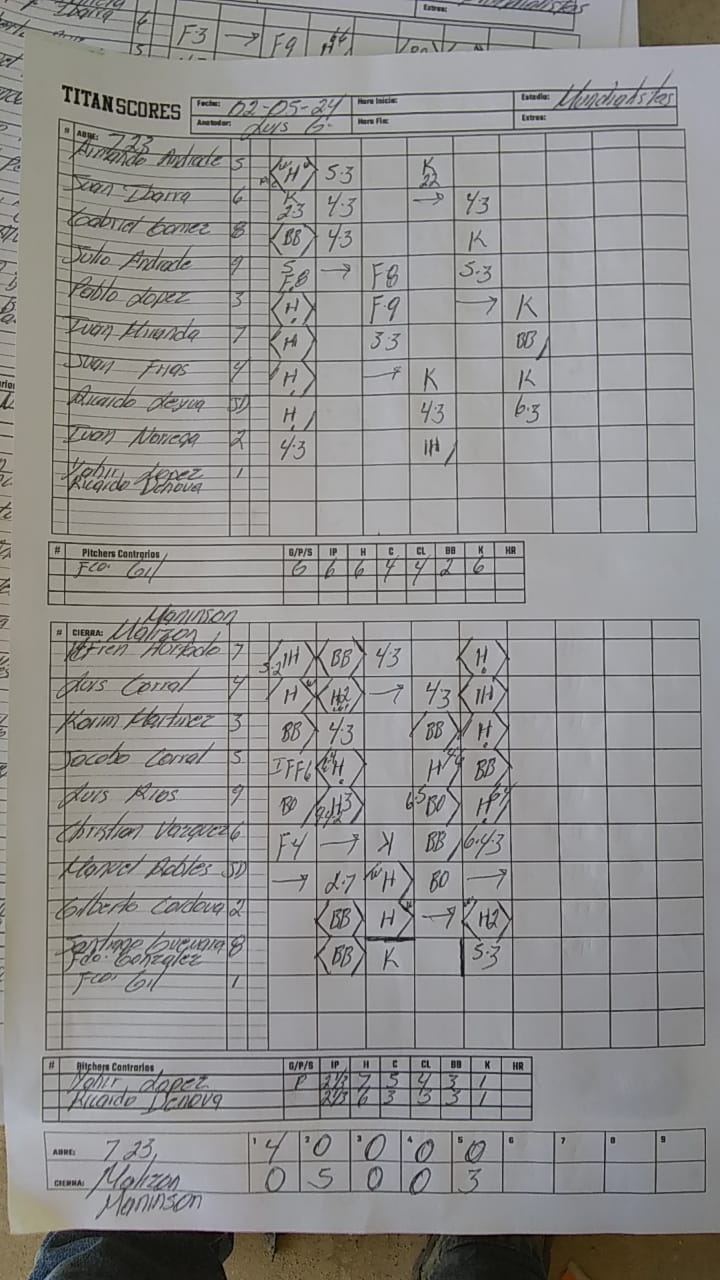 F3 → F9
Extras:
TITAN SCORES
Fecha: 02-05-24 Hora Inicio: Estadio: Mundialistas
Anotador: Luis G. Hora Fin: Extras:
# ABRE: 723
Armando Andrade 5 H 5-3 K 22
Juan Ibarra 6 K 23 4-3 → 4-3
Gabriel Gomez 8 BB 4-3 K
Julio Andrade 9 F8 → F8 5-3
Pablo Lopez 3 H F9 → K
Ivan Miranda 7 H 33 BB
Juan Frias 4 H → K K
Ricardo Leyva SD H 4-3 6-3
Ivan Noriega 2 4-3 IH
Yahir Lopez 1
Ricardo Denova
# Pitchers Contrarios G/P/S IP H C CL BB K HR
Fco. Gil G 6 6 4 4 2 6
Maninson
# CIERRA: Malizon
Efren Hurtado 7 IH BB 4-3 H
5-2
Luis Corral 4 H H2 → 4-3 IH
Karim Martinez 3 BB 4-3 BB H
Jacobo Corral 5 IFF6 H H BB
Luis Rios 9 BO H3 6-5 BO H
Christian Vazquez 6 F4 → K BB 6-4-3
Manuel Robles SD → 2-7 H BO →
Gilberto Cordova 2 BB H → H2
Santiago Guevara 8 BB K 5-3
Fdo. Gonzalez
Fco. Gil 1
# Pitchers Contrarios G/P/S IP H C CL BB K HR
Yahir Lopez P 2 1/3 7 5 4 3 1
Ricardo Denova 2 1/3 6 3 3 3 1
1 2 3 4 5 6 7 8 9
ABRE: 723 4 0 0 0 0
CIERRA: Malizon 0 5 0 0 3
Maninson